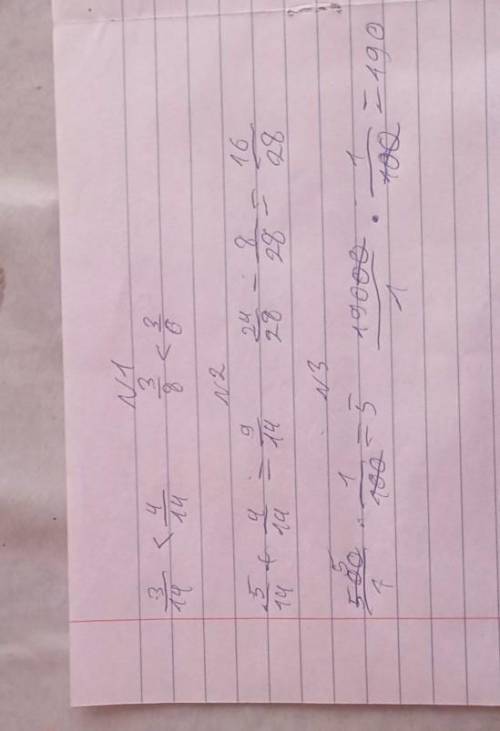 №1
3/14 < 4/14 3/8 < 3/6
№2
5/14 + 4/14 = 9/14 24/28 - 8/28 = 16/28
№3
500/1 · 1/100 = 5 19000/1 · 1/100 = 190